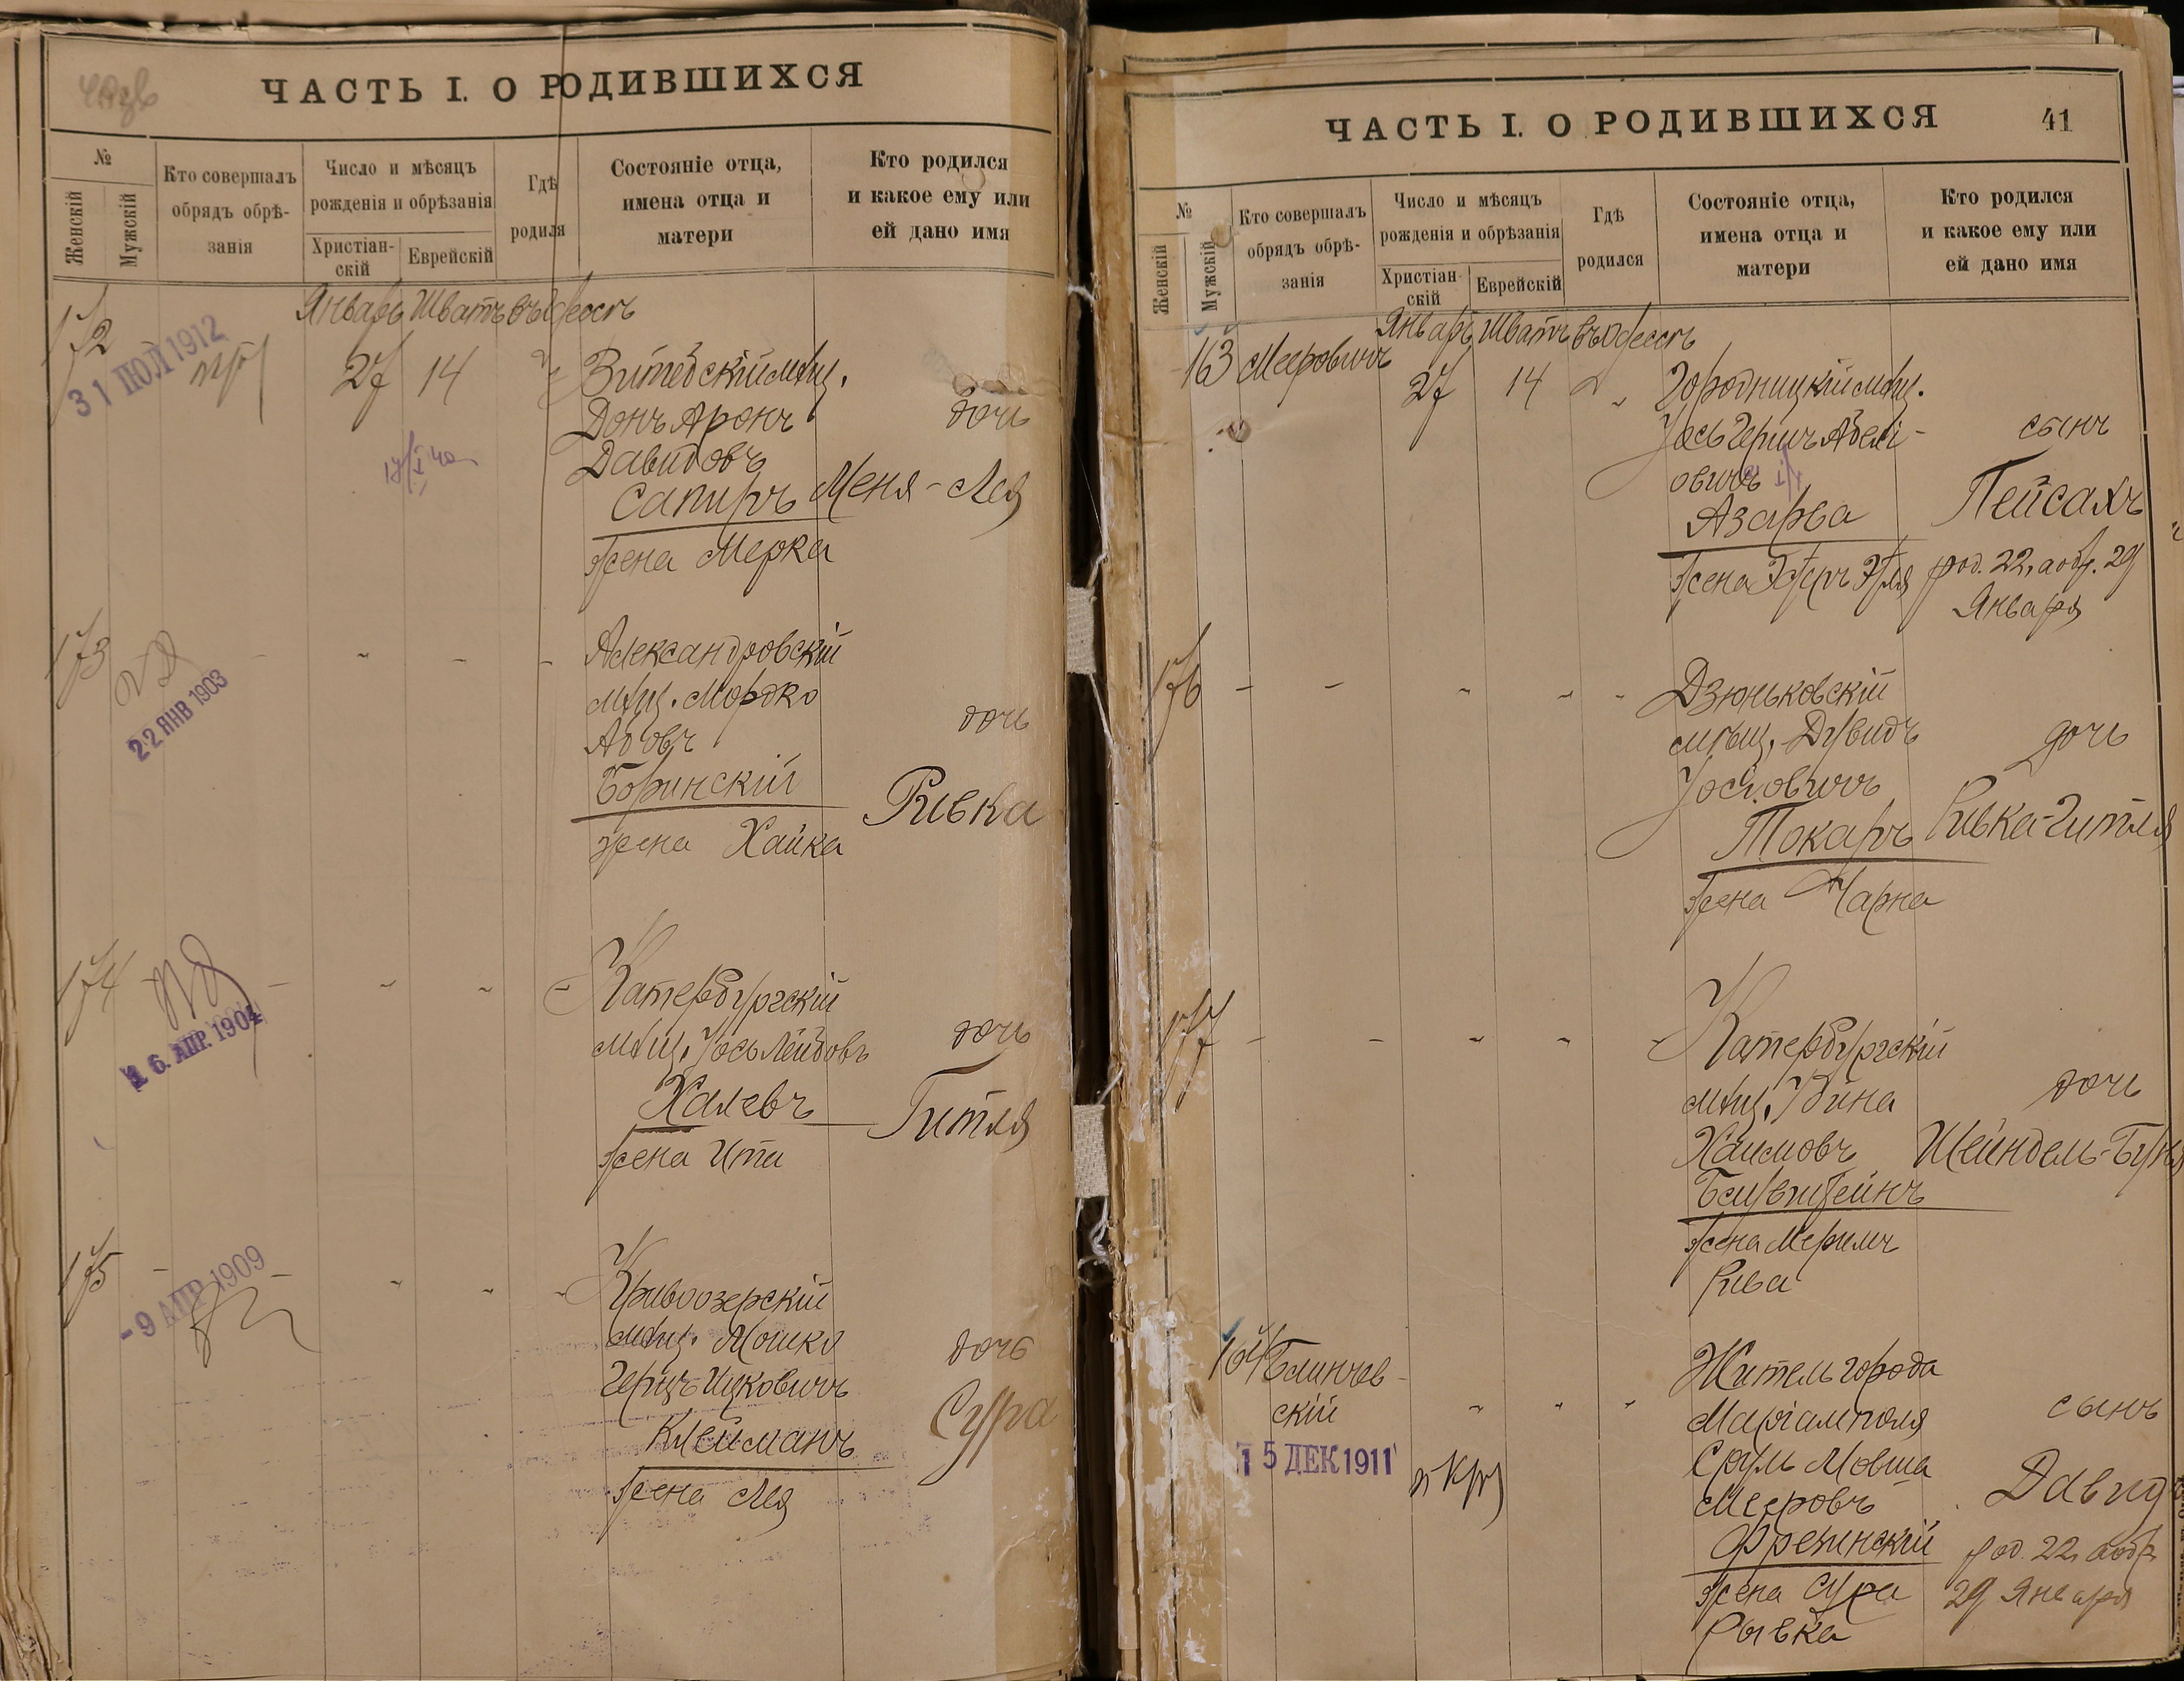 ЧАСТЬ I. О РОДИВШИХСЯ
№
Женскій
Мужскій
Кто совершалъ
обрядъ обрѣ-
занія
Число и мѣсяцъ
рожденія и обрѣзанія
Христіан-
скій
Еврейскій
Гдѣ
родился
Состояніе отца,
имена отца и
матери
Кто родился
и какое ему или
ей дано имя
Январь Шватъ въ Одессѣ
172
31 ИЮЛ 1912
27 14 Витебскій мѣщ.
Донъ Аронъ
дочь
Давидовъ
Сапиръ Меня-Лея
жена Мерка
173
22 ЯНВ 1903
Александровскій
мѣщ. Мордко
дочь
Боринскій
Ривка
жена Хайка
174
16. АПР. 1904
Катербургскій
мѣщ. Іось Лейбовъ
дочь
Халевъ
Гитля
жена Ита
175
-9 АПР 1909
Кривоозерскій
мѣщ. Мошко
дочь
Герцъ Ицковичъ
Сура
Клейманъ
жена Лея
ЧАСТЬ I. О РОДИВШИХСЯ
41
№
Женскій
Мужскій
Кто совершалъ
обрядъ обрѣ-
занія
Число и мѣсяцъ
рожденія и обрѣзанія
Христіан-
скій
Еврейскій
Гдѣ
родился
Состояніе отца,
имена отца и
матери
Кто родился
и какое ему или
ей дано имя
Январь Шватъ въ Одессѣ
163 Мееровичъ
27 14 Городницкій мѣщ.
сынъ
овичъ
Азарва
Пейсахъ
жена Эстеръ Этля
род. 22, а обр. 29
Января
176
Дзюньковскій
мѣщ. Дувидъ
дочь
Іосіовичъ
Токаръ
Ривка-Гитля
жена Чарна
177
Катербургскій
мѣщ.
дочь
Хаимовъ
Шейндель-Буня
жена Мерилъ
Рива
164 Блинчев-
скій
15 ДЕК 1911
Житель города
Маріамполя
сынъ
Сруль Мовша
Мееровъ
Давид
жена Сура
Рывка
род. 22, а обр.
29 Января